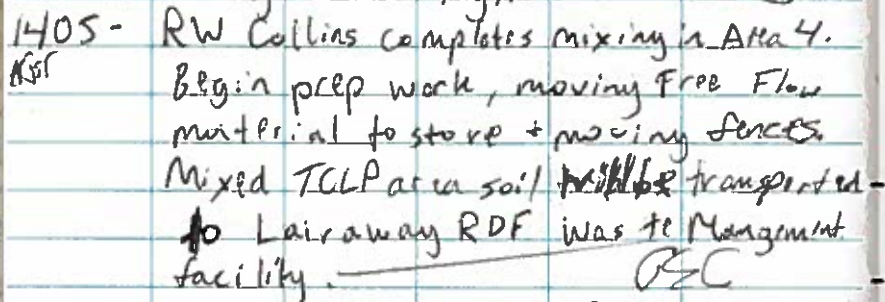 1405 - RW Collins completes mixing in Area 4.
Begin prep work, moving Free Flow
material to store + moving fences.
Mixed TCLP area soil transported
to Lairaway RDF Waste Mangement
facility.